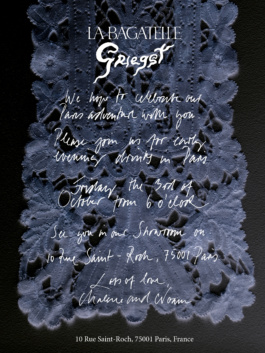 LA BAGATELLE
Griegst
We hope to celebrate our
Paris adventure with you
Please join us for early
evening drinks in Paris
Friday the 3rd of
October from 6 o'clock
See you in our Showroom on
10 Rue Saint-Roch, 75001 Paris
Lots of love,
and Noam
10 Rue Saint-Roch, 75001 Paris, France